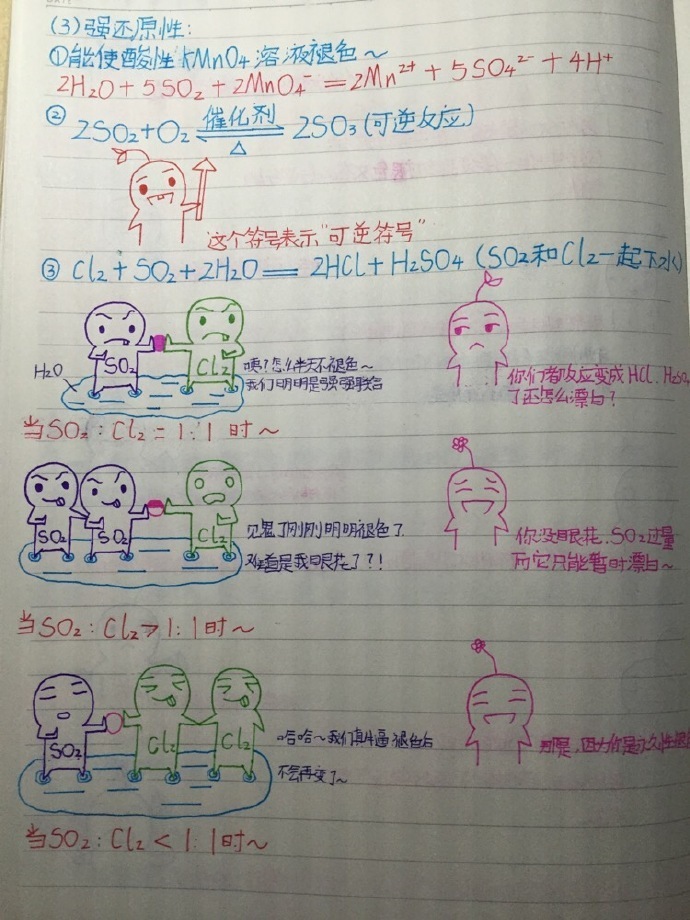 (3)强还原性:
①能使酸性KMnO₄溶液褪色~
2H₂O+5SO₂+2MnO₄⁻=2Mn²⁺+5SO₄²⁻+4H⁺
② 2SO₂+O₂ 催化剂 △ 2SO₃(可逆反应)
这个符号表示"可逆符号"
③ Cl₂+SO₂+2H₂O=2HCl+H₂SO₄(SO₂和Cl₂一起下水)
H₂O
SO₂
Cl₂
咦?怎么半天不褪色~
我们明明是强强联合
你们都反应变成HCl、H₂SO₄
了还怎么漂白?
当SO₂:Cl₂=1:1时~
SO₂
SO₂
Cl₂
见鬼了刚刚明明褪色了
难道是我眼花了?!
你没眼花.SO₂过量
而它只能暂时漂白~
当SO₂:Cl₂>1:1时~
SO₂
Cl₂
Cl₂
哈哈~我们真牛逼褪色后
不会再变了~
那是,因为你是永久性褪
当SO₂:Cl₂<1:1时~